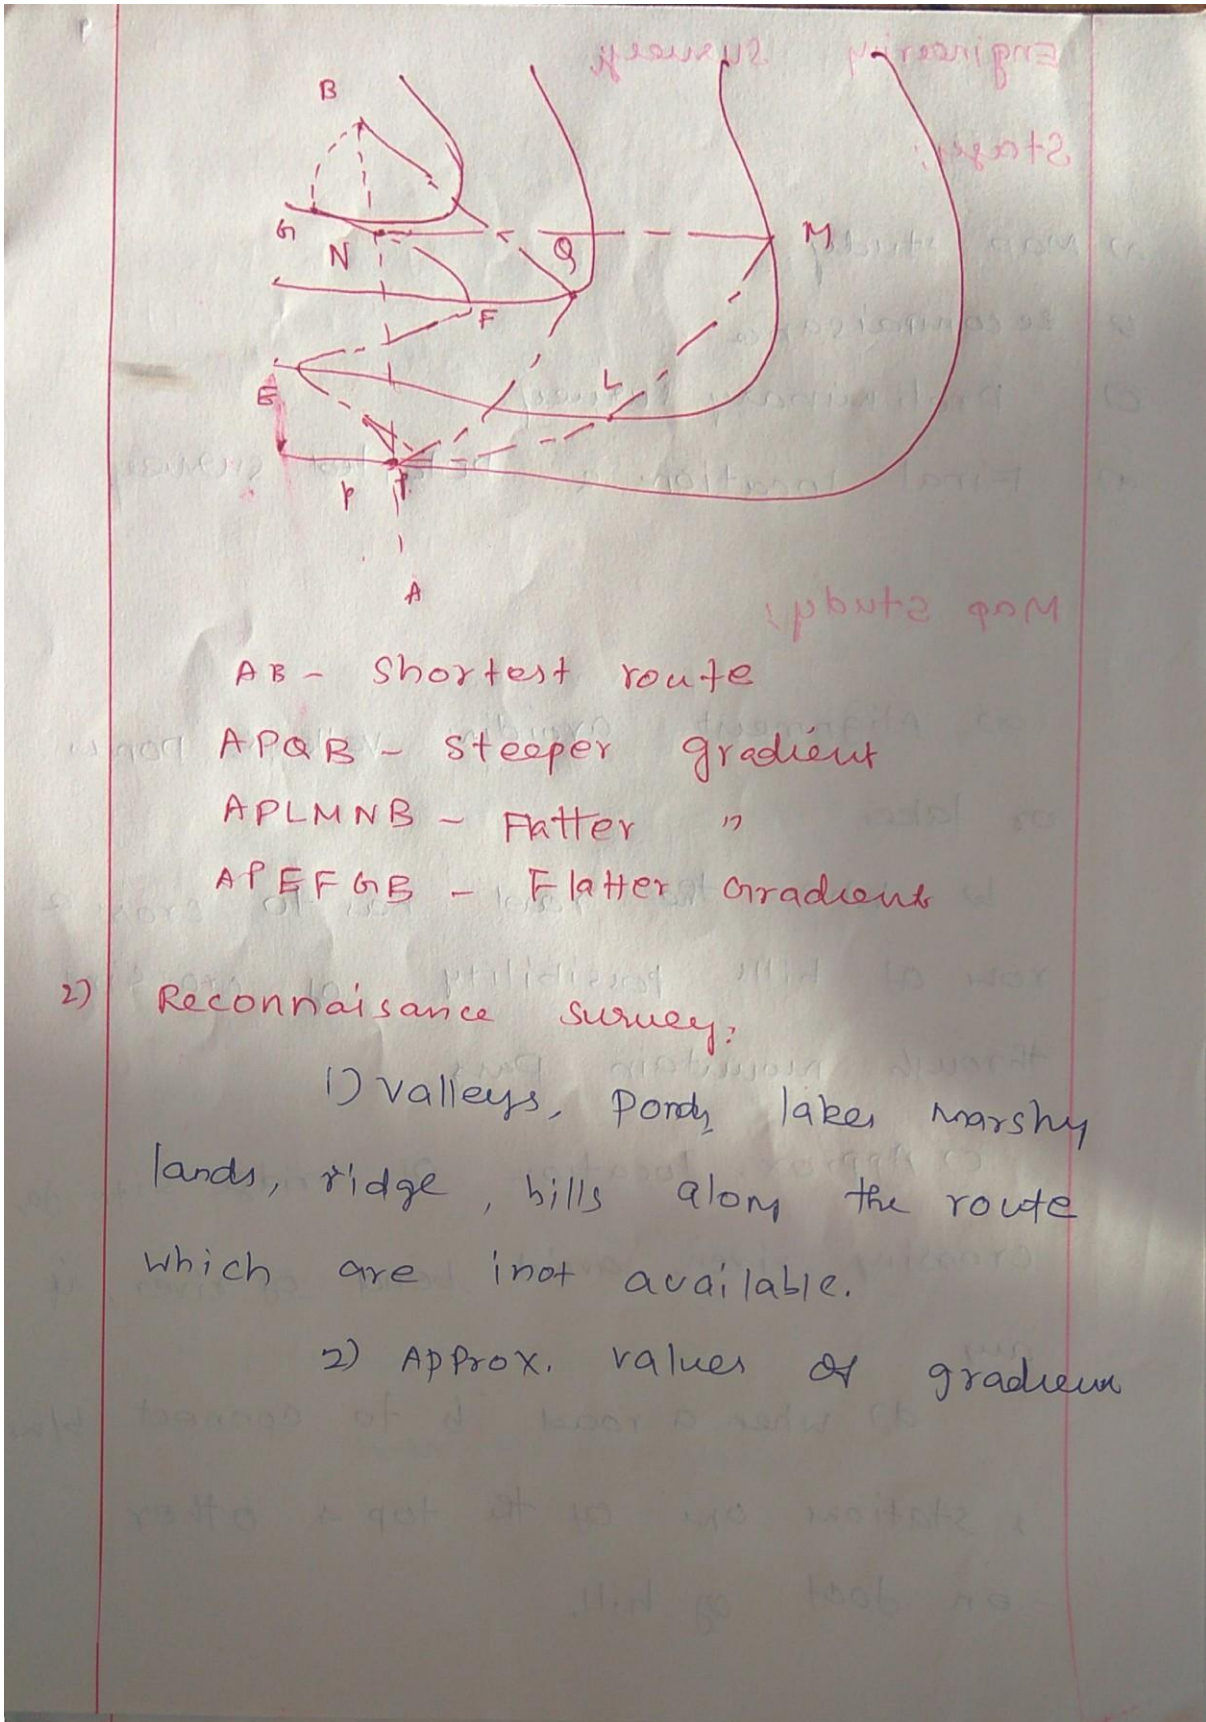 B
G
N
Q
M
F
E
L
P
P
A
AB - Shortest route
APQB - Steeper gradient
APLMNB - Flatter "
APEFGB - Flatter Gradient
2) Reconnaisance survey:
1) Valleys, Ponds, lakes marshy
lands, ridge, hills along the route
which are inot available.
2) Approx. values of gradient